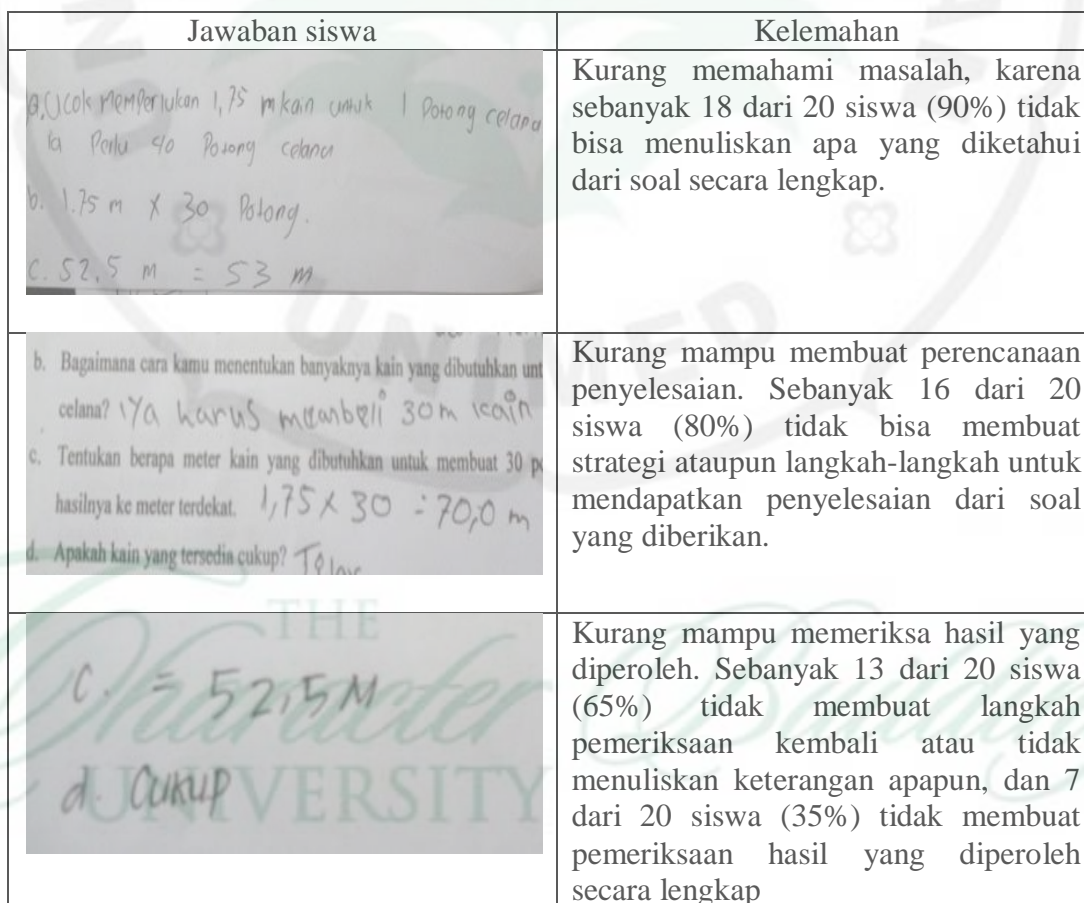 Jawaban siswa
Kelemahan
a. Ucok Memperlukan 1,75 m kain untuk 1 Potong celana
ia Perlu 40 Potong celana
b. 1.75 m X 30 Potong.
c. 52,5 m = 53 m
Kurang memahami masalah, karena
sebanyak 18 dari 20 siswa (90%) tidak
bisa menuliskan apa yang diketahui
dari soal secara lengkap.
b. Bagaimana cara kamu menentukan banyaknya kain yang dibutuhkan unt
celana? iya harus meanbeli 30m kain
c. Tentukan berapa meter kain yang dibutuhkan untuk membuat 30 po
hasilnya ke meter terdekat. 1,75 X 30 = 70,0 m
d. Apakah kain yang tersedia cukup?
Kurang mampu membuat perencanaan
penyelesaian. Sebanyak 16 dari 20
siswa (80%) tidak bisa membuat
strategi ataupun langkah-langkah untuk
mendapatkan penyelesaian dari soal
yang diberikan.
c. = 52,5 M
d. CUKUP
Kurang mampu memeriksa hasil yang
diperoleh. Sebanyak 13 dari 20 siswa
(65%) tidak membuat langkah
pemeriksaan kembali atau tidak
menuliskan keterangan apapun, dan 7
dari 20 siswa (35%) tidak membuat
pemeriksaan hasil yang diperoleh
secara lengkap
UNIMED
THE
Character Building
UNIVERSITY